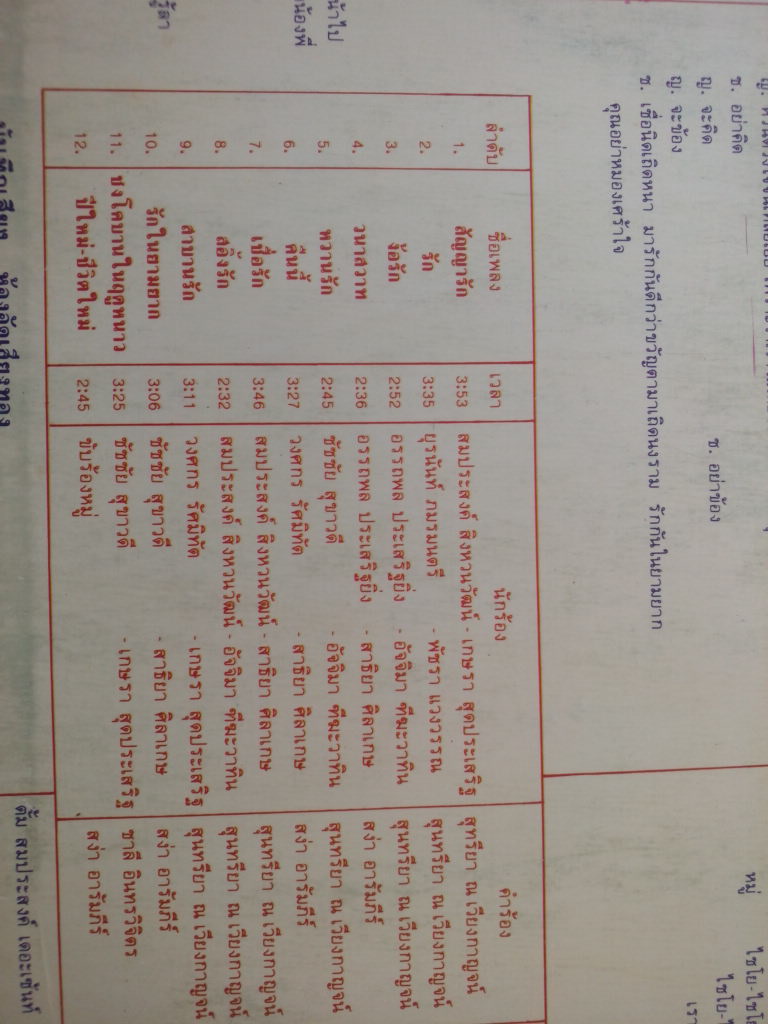 ช. อย่าคิด
ญ. จะคิด
ช. อย่าช้อง
ญ. จะช้อง
ช. เชื่อนิดเถิดหนา มารักกันดีกว่าขวัญตามาเถิดนงราม รักกันในยามยาก
คุณอย่าหมองเศร้าใจ
หมู่
ลำดับ ชื่อเพลง เวลา นักร้อง คำร้อง
1. สัญญารัก 3:53 สมประสงค์ สิงหวนวัฒน์ - เกษรา สุดประเสริฐ สุทรียา ณ เวียงกาญจน์
2. รัก 3:35 ยุรนันท์ ภมรมนตรี - พัชรา แวงวรรณ สุนทรียา ณ เวียงกาญจน์
3. ง้อรัก 2:52 อรรถพล ประเสริฐยิ่ง - อัจจิมา ทีฆะวาทิน สุนทรียา ณ เวียงกาญจน์
4. วมาศวาท 2:36 อรรถพล ประเสริฐยิ่ง - สาธิยา ศิลาเกษ สง่า อารัมภีร์
5. หวานรัก 2:45 ชัชชัย สุขาวดี - อัจจิมา ทีฆะวาทิน สุนทรียา ณ เวียงกาญจน์
6. คืนนี้ 3:27 วงศกร รัศมิทัต - สาธิยา ศิลาเกษ สง่า อารัมภีร์
7. เชื่อรัก 3:46 สมประสงค์ สิงหวนวัฒน์ - สาธิยา ศิลาเกษ สุนทรียา ณ เวียงกาญจน์
8. สลิ้งรัก 2:32 สมประสงค์ สิงหวนวัฒน์ - อัจจิมา ทีฆะวาทิน สุนทรียา ณ เวียงกาญจน์
9. สาบานรัก 3:11 วงศกร รัศมิทัต - เกษรา สุดประเสริฐ สุนทรียา ณ เวียงกาญจน์
10. รักในยามยาก 3:06 ชัชชัย สุขาวดี - สาธิยา ศิลาเกษ สง่า อารัมภีร์
11. ชงโคบานในฤดูหนาว 3:25 ชัชชัย สุขาวดี - เกษรา สุดประเสริฐ ชาลี อินทรวิจิตร
12. ปีใหม่-ชีวิตใหม่ 2:45 ขับร้องหมู่ สง่า อารัมภีร์
บันทึกเสียง ห้องอัดเสียงทอง
ตั้ม สมประสงค์ เดอะเซ็นท์